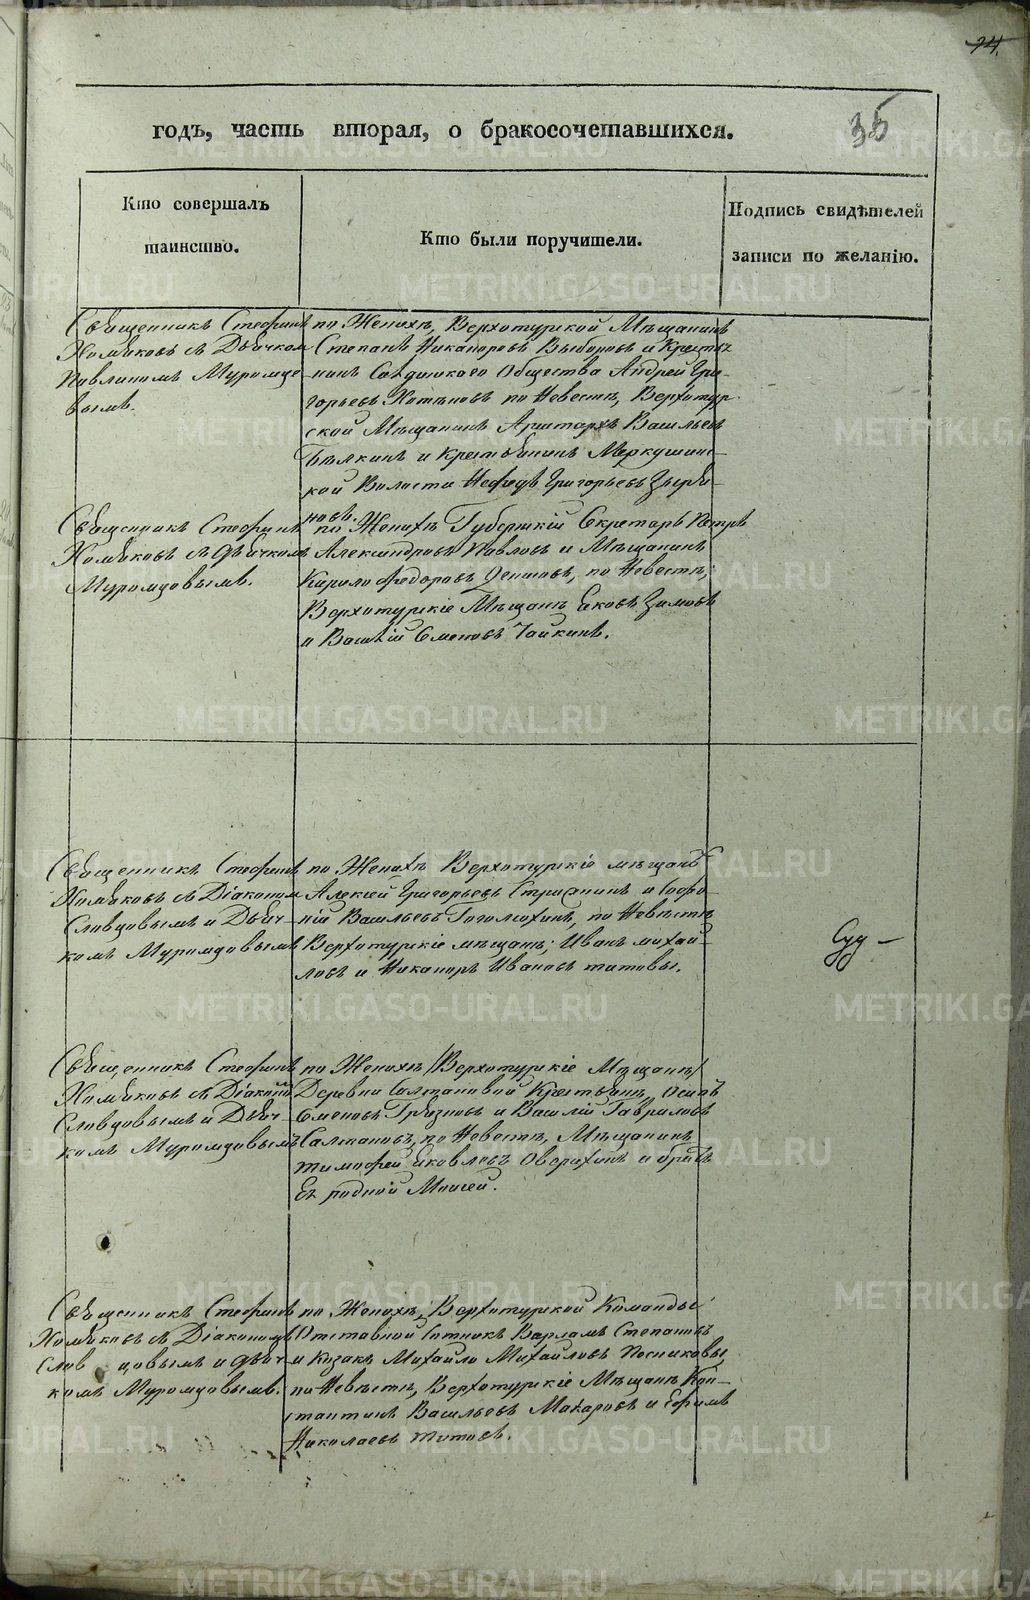 74.
35
годъ, часть вторая, о бракосочетавшихся.
Кто совершалъ
таинство.
Кто были поручители.
Подпись свидѣтелей
записи по желанію.
Священникъ Стефанъ
Хомяковъ съ Дьячкомъ
Павлиномъ Муромцо-
вымъ.
по Женихѣ, Верхотурской Мѣщанинъ
Степанъ Никаноровъ Выборовъ и Кресть
нинъ Салдинского Общества Андрей Гри-
горьевъ по Невестѣ, Верхотур-
ской Мѣщанинъ Аристархъ Васильевъ
Бѣлкинъ и Крестьянинъ Меркушин-
кой Волости Нефедъ Григорьевъ Зыря-
новъ.
Священникъ Стефанъ
Хомяковъ съ дьячкомъ
Муромцовымъ.
по Женихѣ Губернскій Секретарь Петръ
Александровъ Павловъ и Мѣщанинъ
Кирило Федоровъ по Невестѣ,
Верхотурскіе Мѣщане Яковъ Зимовъ
и Василій Семеновъ Чайкинъ.
Священникъ Стефанъ
Хомяковъ съ Діакономъ
Словцовымъ и Дьяч-
комъ Муромцовымъ
по Женихѣ Верхотурскіе мѣщане
Алексей Григорьевъ и Софо-
ній Васильевъ Гоголюхинъ, по Невѣстѣ
Верхотурскіе мѣщане; Иванъ михай-
ловъ и Никаноръ Ивановъ титовы.
Священникъ Стефанъ
Хомяковъ съ Діакономъ
Словцовымъ и Дьяч-
комъ Муромцовымъ
по Женихѣ /Верхотурскіе Мѣщане/
Деревни Салтановой Крестьяне, Осипъ
Семеновъ Грязновъ и Василій Гавриловъ
Салтановъ, по Невестѣ, Мѣщанинъ
тимофей Яковлевъ и братъ
Ея родной Моисей.
Священникъ Стефанъ
Хомяковъ съ Діакономъ
Слов цовымъ и дьяч-
комъ Муромцовымъ.
по Женихѣ, Верхотурской Команды
Отставной Сотникъ Варламъ Степановъ
и Козакъ Михайло Михайловъ Посниковы,
по Невѣстѣ, Верхотурскіе Мѣщане Кон-
стантинъ Васильевъ Макаровъ и Ефимъ
Николаевъ титовъ.
METRIKI.GASO-URAL.RU